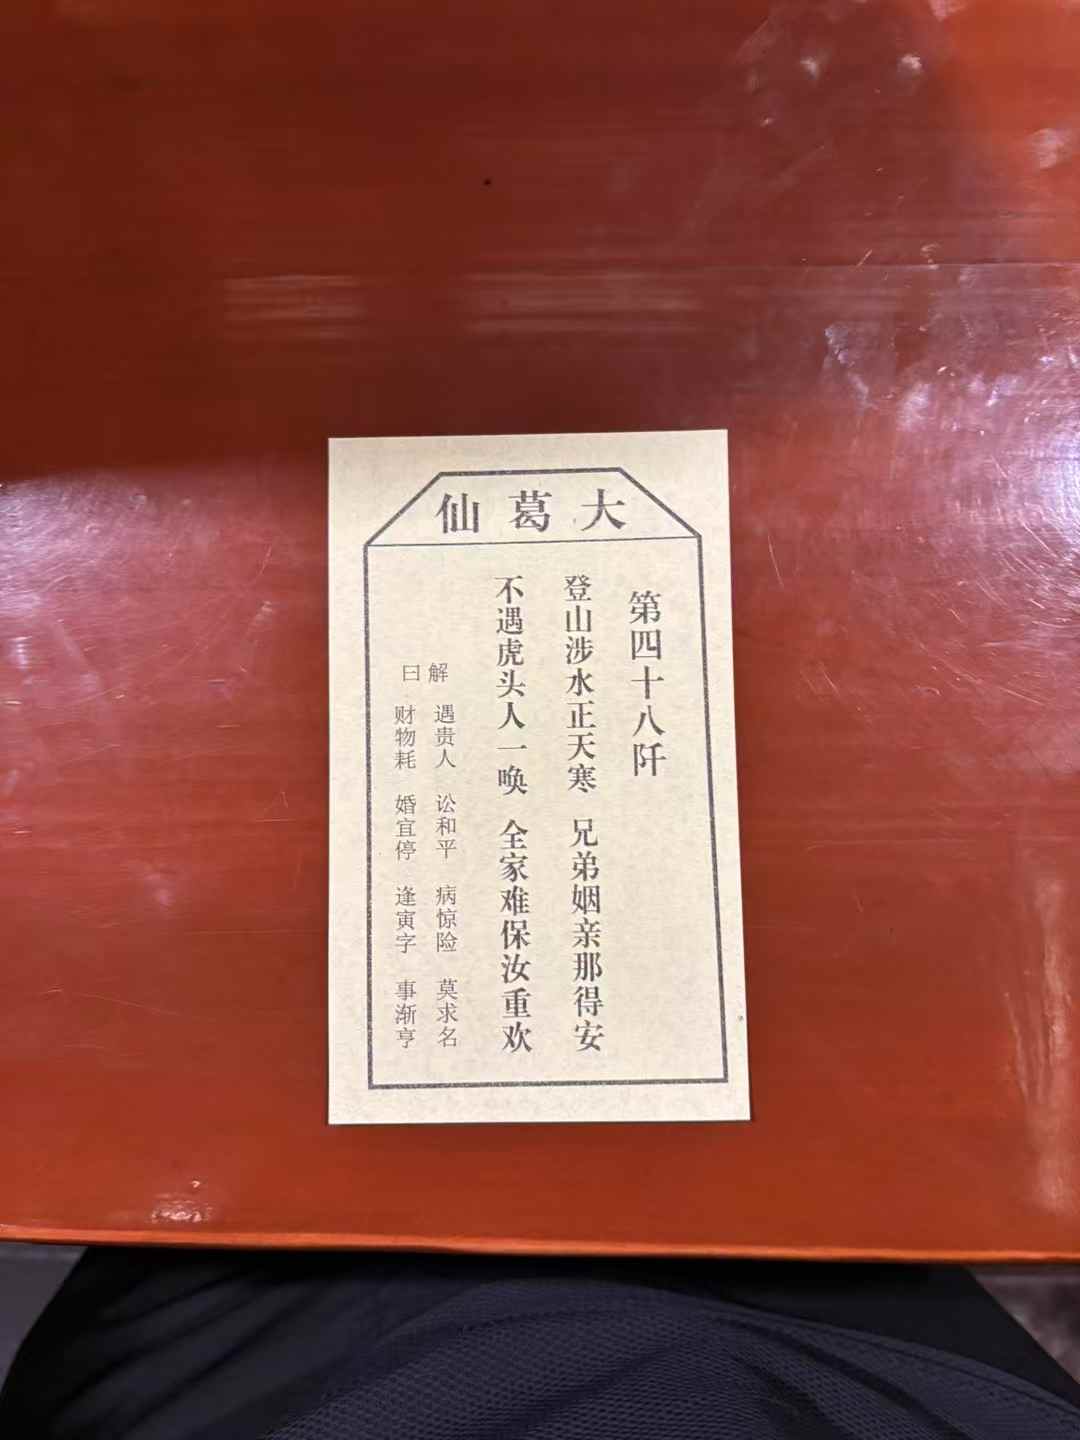 大葛仙
第四十八阡
登山涉水正天寒 兄弟姻亲那得安
不遇虎头人一唤 全家难保汝重欢
解曰
遇贵人 讼和平 病惊险 莫求名
财物耗 婚宜停 逢寅字 事渐亨